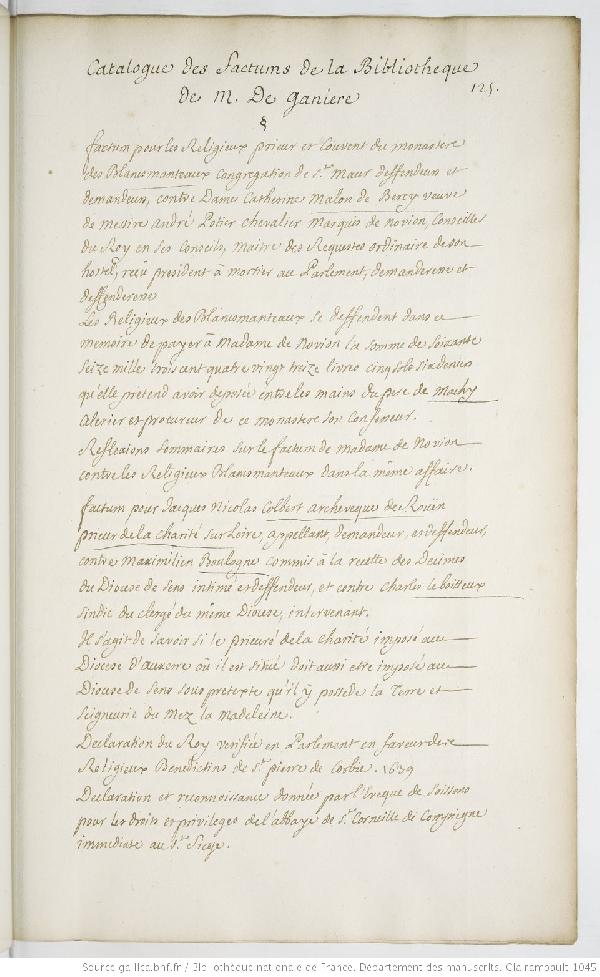 Catalogue des factums de la Bibliotheque
de M. De Ganiere
125.
§
factum pour les Religieux prieur et Couvent du monastere
des Blancsmanteaux congregation de St. Maur deffendeurs et
demandeurs, contre Dame Catherine Malon de Bercy veuve
de messire André Potier chevalier Marquis de Novion, Conseiller
du Roy en ses Conseils, Maitre des Requestes ordinaire de son
hostel, reçu president à mortier au Parlement, demanderesse et
deffenderesse
Les Religieux des Blancsmanteaux se deffendent dans ce
memoire de payer à Madame de Novion la somme de soixante
seize mille trois cent quatre vingt treize livres cinq sols six deniers
qu'elle pretend avoir deposée entre les mains du pere de Machy
Celerier et procureur de ce monastere son Confesseur.
Reflexions sommaires sur le factum de madame de Novion
contre les Religieux Blancsmanteaux dans la même affaire.
factum pour Jacques Nicolas Colbert archeveque de Roüen
prieur de la charité sur Loire, appellant, demandeur, et deffendeur,
contre Maximilien Boulogne commis à la recette des Decimes
du Diocese de Sens intimé et deffendeur, et contre Charles le boitteux
sindic du clergé du même Diocese, intervenant.
Il s'agit de savoir si le prieuré de la charité imposé au
Diocese d'auxerre où il est situé doit aussi estre imposé au
Diocese de Sens sous pretexte qu'il y possede la Terre et
Seigneurie du Mez la Madeleine.
Declaration du Roy verifiée en Parlement en faveur des
Religieux Benedictins de St. pierre de Corbie. 1639
Declaration et reconnoissance donnée par l'Eveque de Soissons
pour les droits et privileges de l'abbaye de St. Corneille de Compiegne
immediate au St. Siege.
Source gallica.bnf.fr / Bibliothèque nationale de France. Département des manuscrits. Clairambault 1045